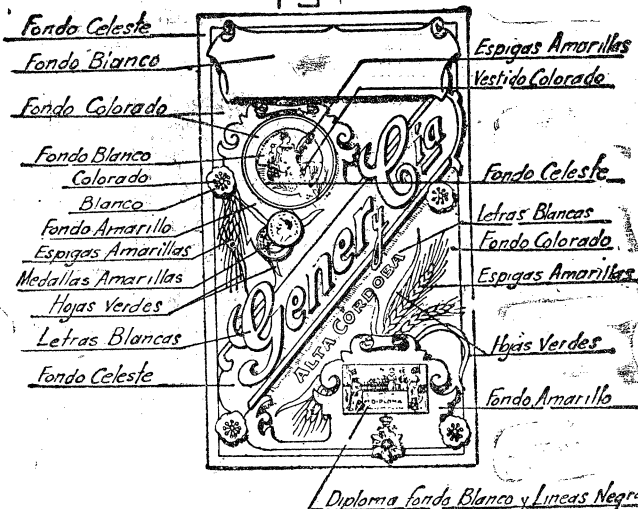 Fondo Celeste
Fondo Blanco
Fondo Colorado
Fondo Blanco
Colorado
Blanco
Fondo Amarillo
Espigas Amarillas
Medallas Amarillas
Hojas Verdes
Letras Blancas
Fondo Celeste
Gener y Cia
ALTA CORDOBA
DIPLOMA
Espigas Amarillas
Vestido Colorado
Fondo Celeste
Letras Blancas
Fondo Colorado
Espigas Amarillas
Hojas Verdes
Fondo Amarillo
Diploma fondo Blanco y Lineas Negra